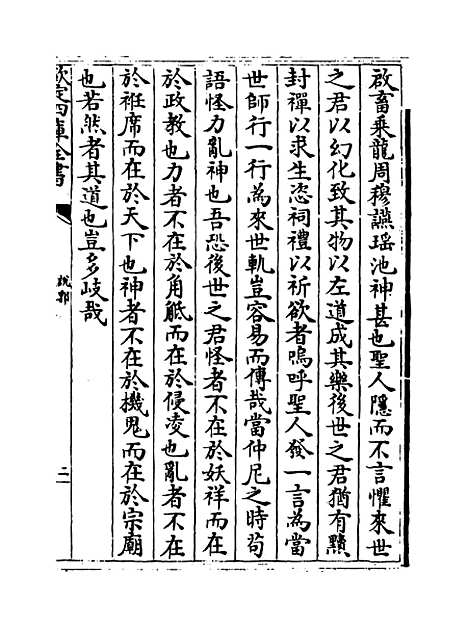 啟畜乘龍周穆讌瑤池神甚也聖人隱而不言懼來世
之君以幻化致其物以左道成其樂後世之君猶有黷
封禪以求生恣祠禮以祈欲者嗚呼聖人發一言為當
世師行一行為來世軌豈容易而傳哉當仲尼之時苟
語怪力亂神也吾恐後世之君怪者不在於妖祥而在
於政教也力者不在於角觝而在於侵凌也亂者不在
於袵席而在於天下也神者不在於機鬼而在於宗廟
也若然者其道也豈多岐哉
欽定四庫全書
說郛
二